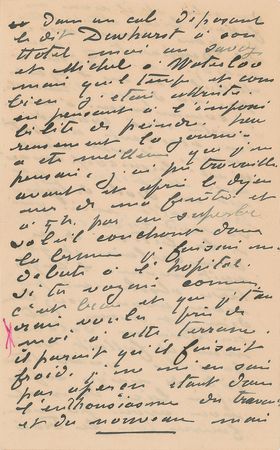 dans un cab déposant
le dit Dewhurst à son
Hotel moi au savoy
et Michel à Waterloo
mais quel temps et com
bien j'étais attristé
en pensant à l'impossi
bilité de peindre. heu
reusement la journée
a été meilleure que j'en
pensais, j'ai pu travailler
avant et après le déjeu
ner de ma fenêtre et
à 5 h. par un superbe
soleil couchant dans
la brume
débuts à l'hopital.
si tu voyais comme
c'est beau et que j'au
rais voulu près de
moi à cette terrasse
il parait qu'il faisait
froid. je ne m'en suis
pas aperçu étant dans
l'enthousiasme du travail
et du nouveau mais